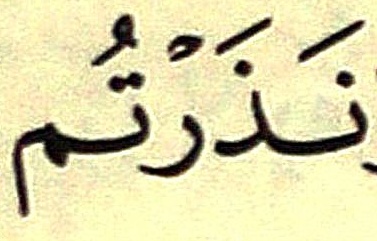 نَذَرْتُم